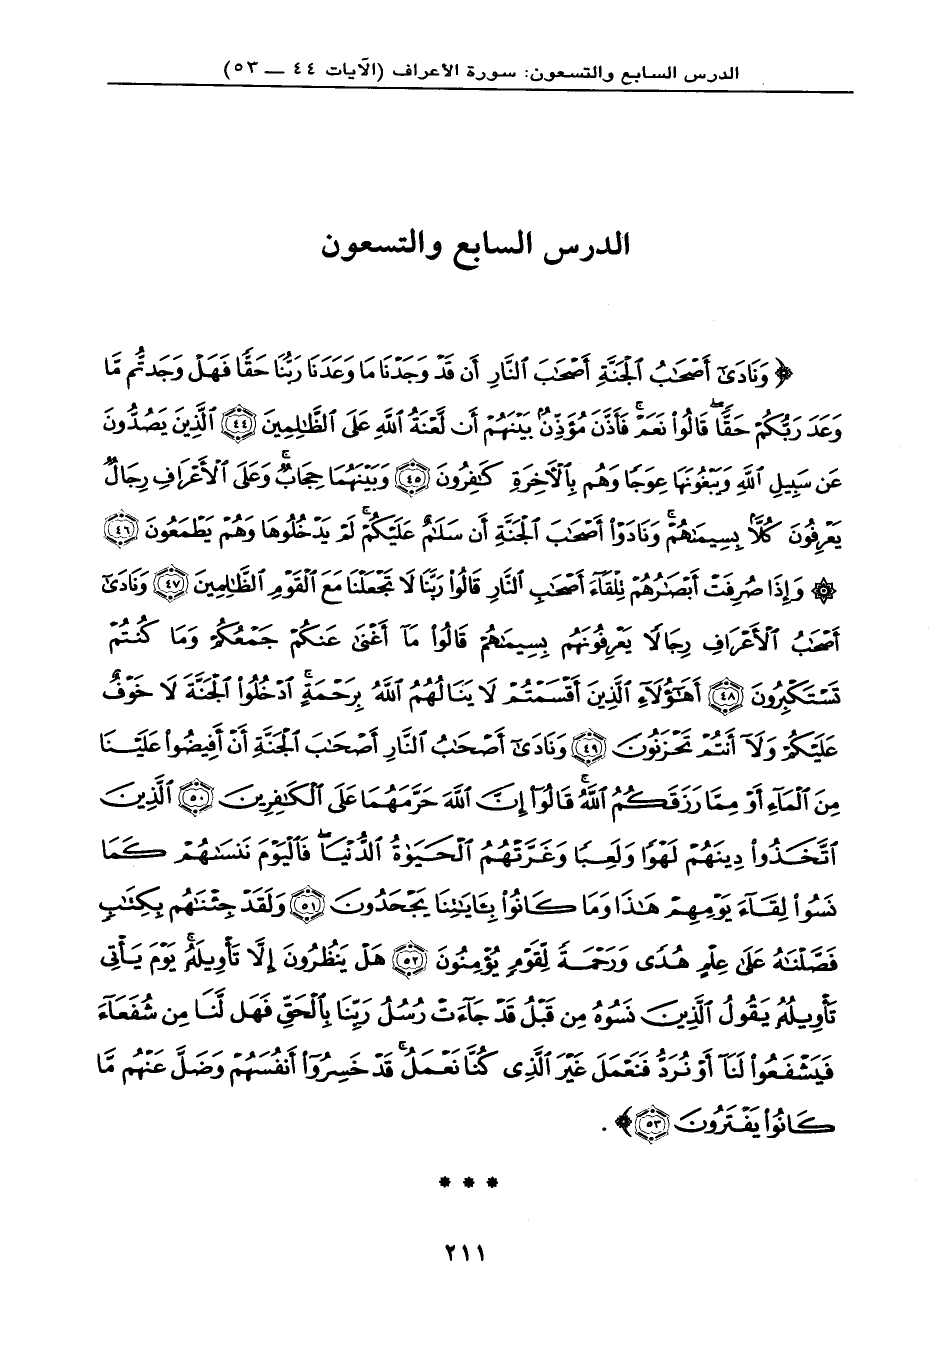 الدرس السابع والتسعون: سورة الأعراف (الآيات ٤٤ — ٥٣)
الدرس السابع والتسعون
﴿ وَنَادَىٰٓ أَصْحَٰبُ ٱلْجَنَّةِ أَصْحَٰبَ ٱلنَّارِ أَن قَدْ وَجَدْنَا مَا وَعَدَنَا رَبُّنَا حَقًّا فَهَلْ وَجَدتُّم مَّا
وَعَدَ رَبُّكُمْ حَقًّا ۖ قَالُوا۟ نَعَمْ ۚ فَأَذَّنَ مُؤَذِّنٌۢ بَيْنَهُمْ أَن لَّعْنَةُ ٱللَّهِ عَلَى ٱلظَّٰلِمِينَ ﴿٤٤﴾ ٱلَّذِينَ يَصُدُّونَ
عَن سَبِيلِ ٱللَّهِ وَيَبْغُونَهَا عِوَجًا وَهُم بِٱلْءَاخِرَةِ كَٰفِرُونَ ﴿٤٥﴾ وَبَيْنَهُمَا حِجَابٌ ۚ وَعَلَى ٱلْأَعْرَافِ رِجَالٌ
يَعْرِفُونَ كُلًّۢا بِسِيمَىٰهُمْ ۚ وَنَادَوْا۟ أَصْحَٰبَ ٱلْجَنَّةِ أَن سَلَٰمٌ عَلَيْكُمْ ۚ لَمْ يَدْخُلُوهَا وَهُمْ يَطْمَعُونَ ﴿٤٦﴾
۞ وَإِذَا صُرِفَتْ أَبْصَٰرُهُمْ تِلْقَآءَ أَصْحَٰبِ ٱلنَّارِ قَالُوا۟ رَبَّنَا لَا تَجْعَلْنَا مَعَ ٱلْقَوْمِ ٱلظَّٰلِمِينَ ﴿٤٧﴾ وَنَادَىٰٓ
أَصْحَٰبُ ٱلْأَعْرَافِ رِجَالًا يَعْرِفُونَهُم بِسِيمَىٰهُمْ قَالُوا۟ مَآ أَغْنَىٰ عَنكُمْ جَمْعُكُمْ وَمَا كُنتُمْ
تَسْتَكْبِرُونَ ﴿٤٨﴾ أَهَٰٓؤُلَآءِ ٱلَّذِينَ أَقْسَمْتُمْ لَا يَنَالُهُمُ ٱللَّهُ بِرَحْمَةٍ ۚ ٱدْخُلُوا۟ ٱلْجَنَّةَ لَا خَوْفٌ
عَلَيْكُمْ وَلَآ أَنتُمْ تَحْزَنُونَ ﴿٤٩﴾ وَنَادَىٰٓ أَصْحَٰبُ ٱلنَّارِ أَصْحَٰبَ ٱلْجَنَّةِ أَنْ أَفِيضُوا۟ عَلَيْنَا
مِنَ ٱلْمَآءِ أَوْ مِمَّا رَزَقَكُمُ ٱللَّهُ ۚ قَالُوٓا۟ إِنَّ ٱللَّهَ حَرَّمَهُمَا عَلَى ٱلْكَٰفِرِينَ ﴿٥٠﴾ ٱلَّذِينَ
ٱتَّخَذُوا۟ دِينَهُمْ لَهْوًا وَلَعِبًا وَغَرَّتْهُمُ ٱلْحَيَوٰةُ ٱلدُّنْيَا ۚ فَٱلْيَوْمَ نَنسَىٰهُمْ كَمَا
نَسُوا۟ لِقَآءَ يَوْمِهِمْ هَٰذَا وَمَا كَانُوا۟ بِـَٔايَٰتِنَا يَجْحَدُونَ ﴿٥١﴾ وَلَقَدْ جِئْنَٰهُم بِكِتَٰبٍ
فَصَّلْنَٰهُ عَلَىٰ عِلْمٍ هُدًى وَرَحْمَةً لِّقَوْمٍ يُؤْمِنُونَ ﴿٥٢﴾ هَلْ يَنظُرُونَ إِلَّا تَأْوِيلَهُۥ ۚ يَوْمَ يَأْتِى
تَأْوِيلُهُۥ يَقُولُ ٱلَّذِينَ نَسُوهُ مِن قَبْلُ قَدْ جَآءَتْ رُسُلُ رَبِّنَا بِٱلْحَقِّ فَهَل لَّنَا مِن شُفَعَآءَ
فَيَشْفَعُوا۟ لَنَآ أَوْ نُرَدُّ فَنَعْمَلَ غَيْرَ ٱلَّذِى كُنَّا نَعْمَلُ ۚ قَدْ خَسِرُوٓا۟ أَنفُسَهُمْ وَضَلَّ عَنْهُم مَّا
كَانُوا۟ يَفْتَرُونَ ﴿٥٣﴾ ﴾ .
* * *
٢١١